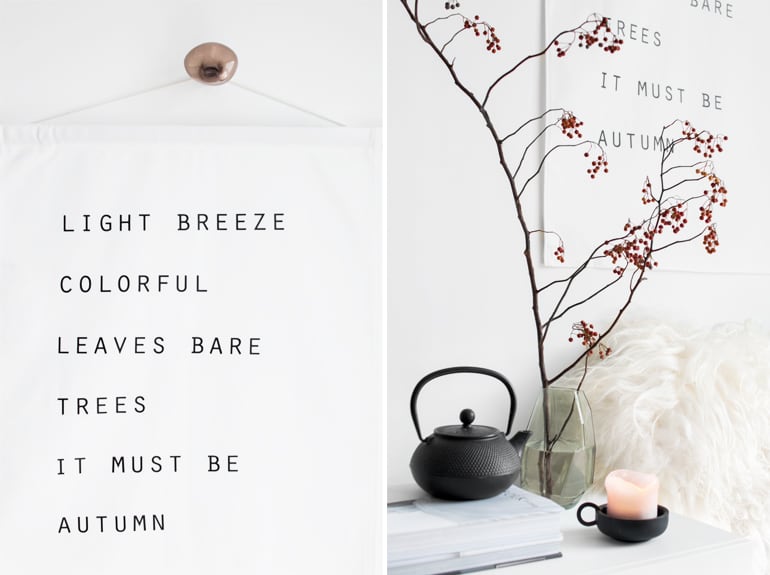 LIGHT BREEZE
COLORFUL
LEAVES BARE
TREES
IT MUST BE
AUTUMN
BARE
TREES
IT MUST BE
AUTUMN